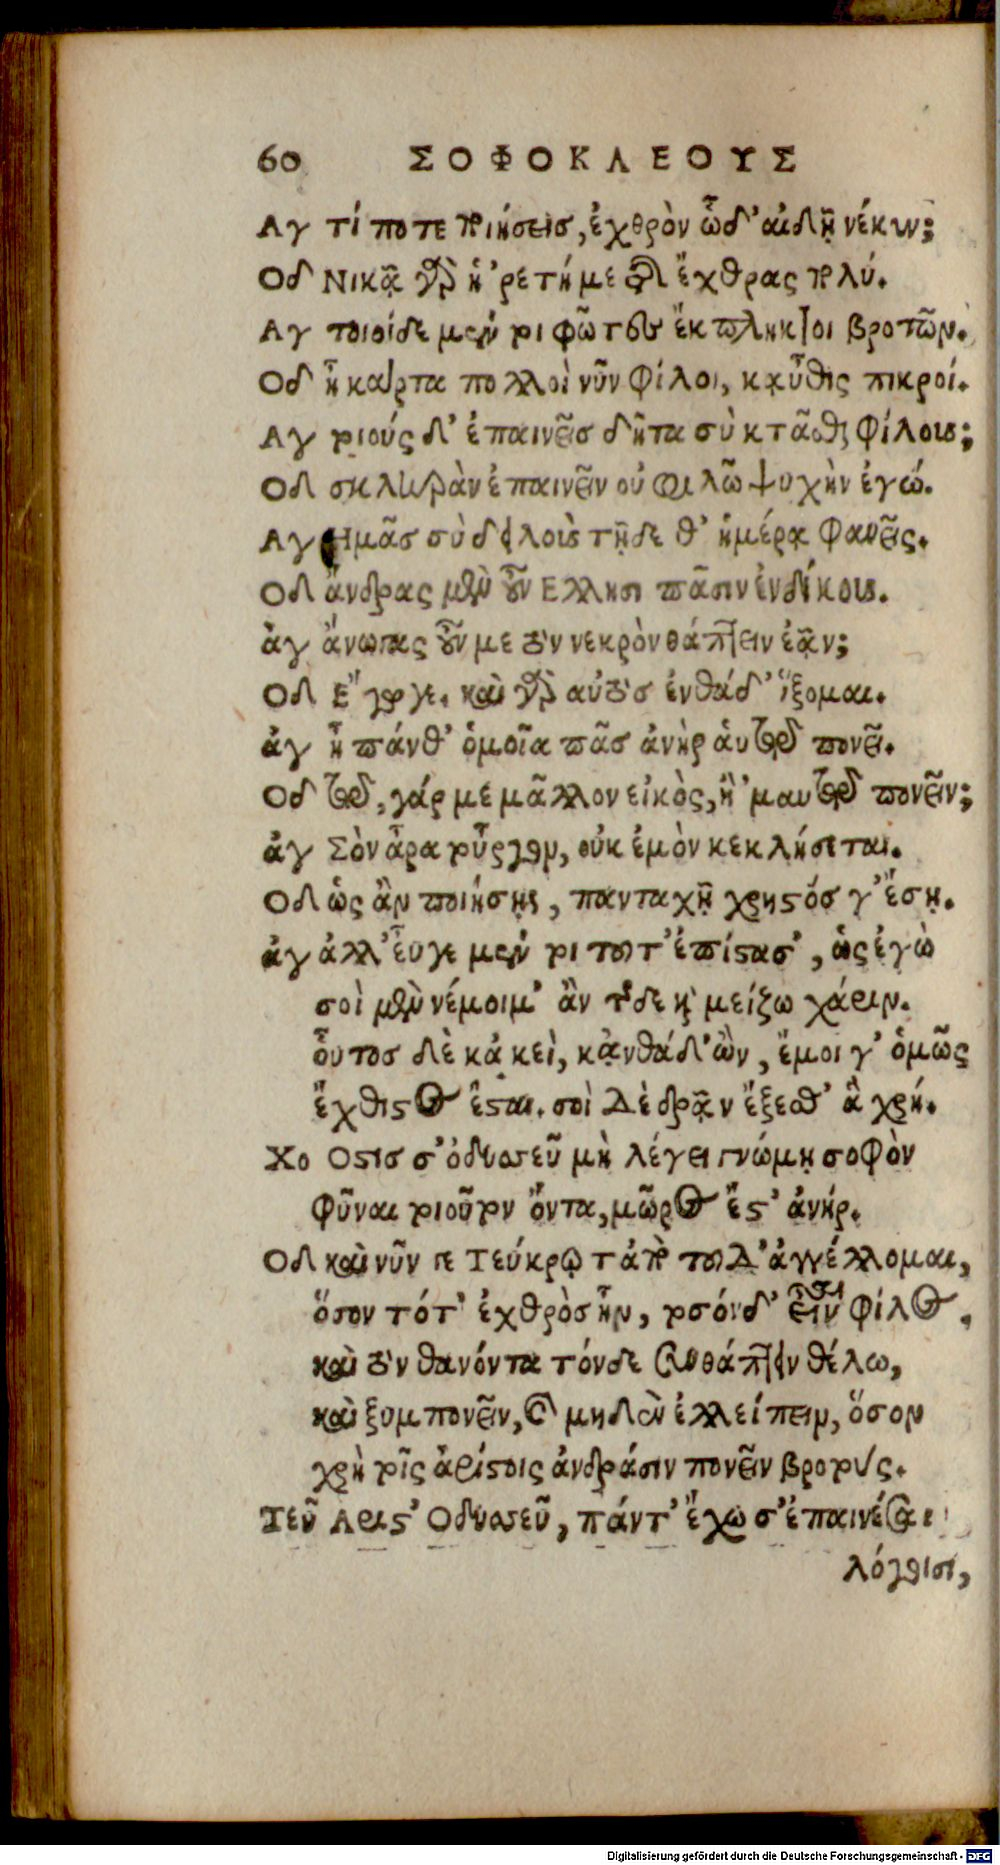 60 ΣΟΦΟΚΛΕΟΥΣ
Αγ τί ποτε ποιήσεισ, ἐχθρὸν ὧδ' αἰδῇ νέκυν;
Οδ Νικᾷ γὰρ ἡ 'ρετή με τῆς ἔχθρας πολύ.
Αγ τοιοίδε μέντοι φῶτες ἔκπληκτοι βροτῶν.
Οδ ἦ κάρτα πολλοὶ νῦν φίλοι, καὖθις πικροί.
Αγ τοιούς δ' ἐπαινεῖσ δῆτα σὺ κτᾶσθαι φίλους;
Οδ σκληρὰν ἐπαινεῖν οὐ φιλῶ ψυχὴν ἐγώ.
Αγ Ημᾶσ σὺ δειλοὺς τῇδε θ' ἡμέρᾳ φανεῖς.
Οδ ἄνδρας μὲν οὖν Ελλησι πᾶσιν ἐνδίκους.
ἀγ ἄνωγας οὖν με τὸν νεκρὸν θάπτειν ἐᾷν;
Οδ Ε῎γωγε. καὶ γὰρ αὐτὸσ ἐνθάδ' ἵξομαι.
ἀγ ἦ πάνθ' ὁμοῖα πᾶσ ἀνὴρ αὑτῷ πονεῖ.
Οδ τῷ, γάρ με μᾶλλον εἰκὸς, ἢ 'μαυτῷ πονεῖν;
ἀγ Σὸν ἆρα τοὖργον, οὐκ ἐμὸν κεκλήσεται.
Οδ ὡς ἂν ποιήσῃς, πανταχῇ χρηστόσ γ' ἔσῃ.
ἀγ ἀλλ' εὖγε μέντοι τοῦτ' ἐπίστασ', ὡς ἐγὼ
σοὶ μὲν νέμοιμ' ἂν τῆσδε καὶ μείζω χάριν.
οὗτοσ δὲ κἀκεὶ, κᾀνθάδ' ὢν, ἔμοι γ' ὁμῶς
ἔχθιστος ἔσται. σοὶ Δὲ δρᾷν ἔξεσθ' ἃ χρή.
Χο Οστισ σ' ὀδυσσεῦ μὴ λέγει γνώμῃ σοφὸν
φῦναι τοιοῦτον ὄντα, μῶρος ἔστ' ἀνήρ.
Οδ καὶ νῦν γε Τεύκρῳ τἀπὸ τοῦΔ' ἀγγέλλομαι,
ὅσον τότ' ἐχθρὸσ ἦν, τοσόνδ' εἶναι φίλος.
καὶ τὸν θανόντα τόνδε συνθάπτειν θέλω,
καὶ ξυμπονεῖν, καὶ μηδὲν ἐλλείπειν, ὅσον
χρὴ τοῖς ἀρίστοις ἀνδράσιν πονεῖν βροτούς.
Τεῦ Αριστ' Οδυσσεῦ, πάντ' ἔχω σ' ἐπαινέσαι
λόγοισι,
Digitalisierung gefördert durch die Deutsche Forschungsgemeinschaft - DFG